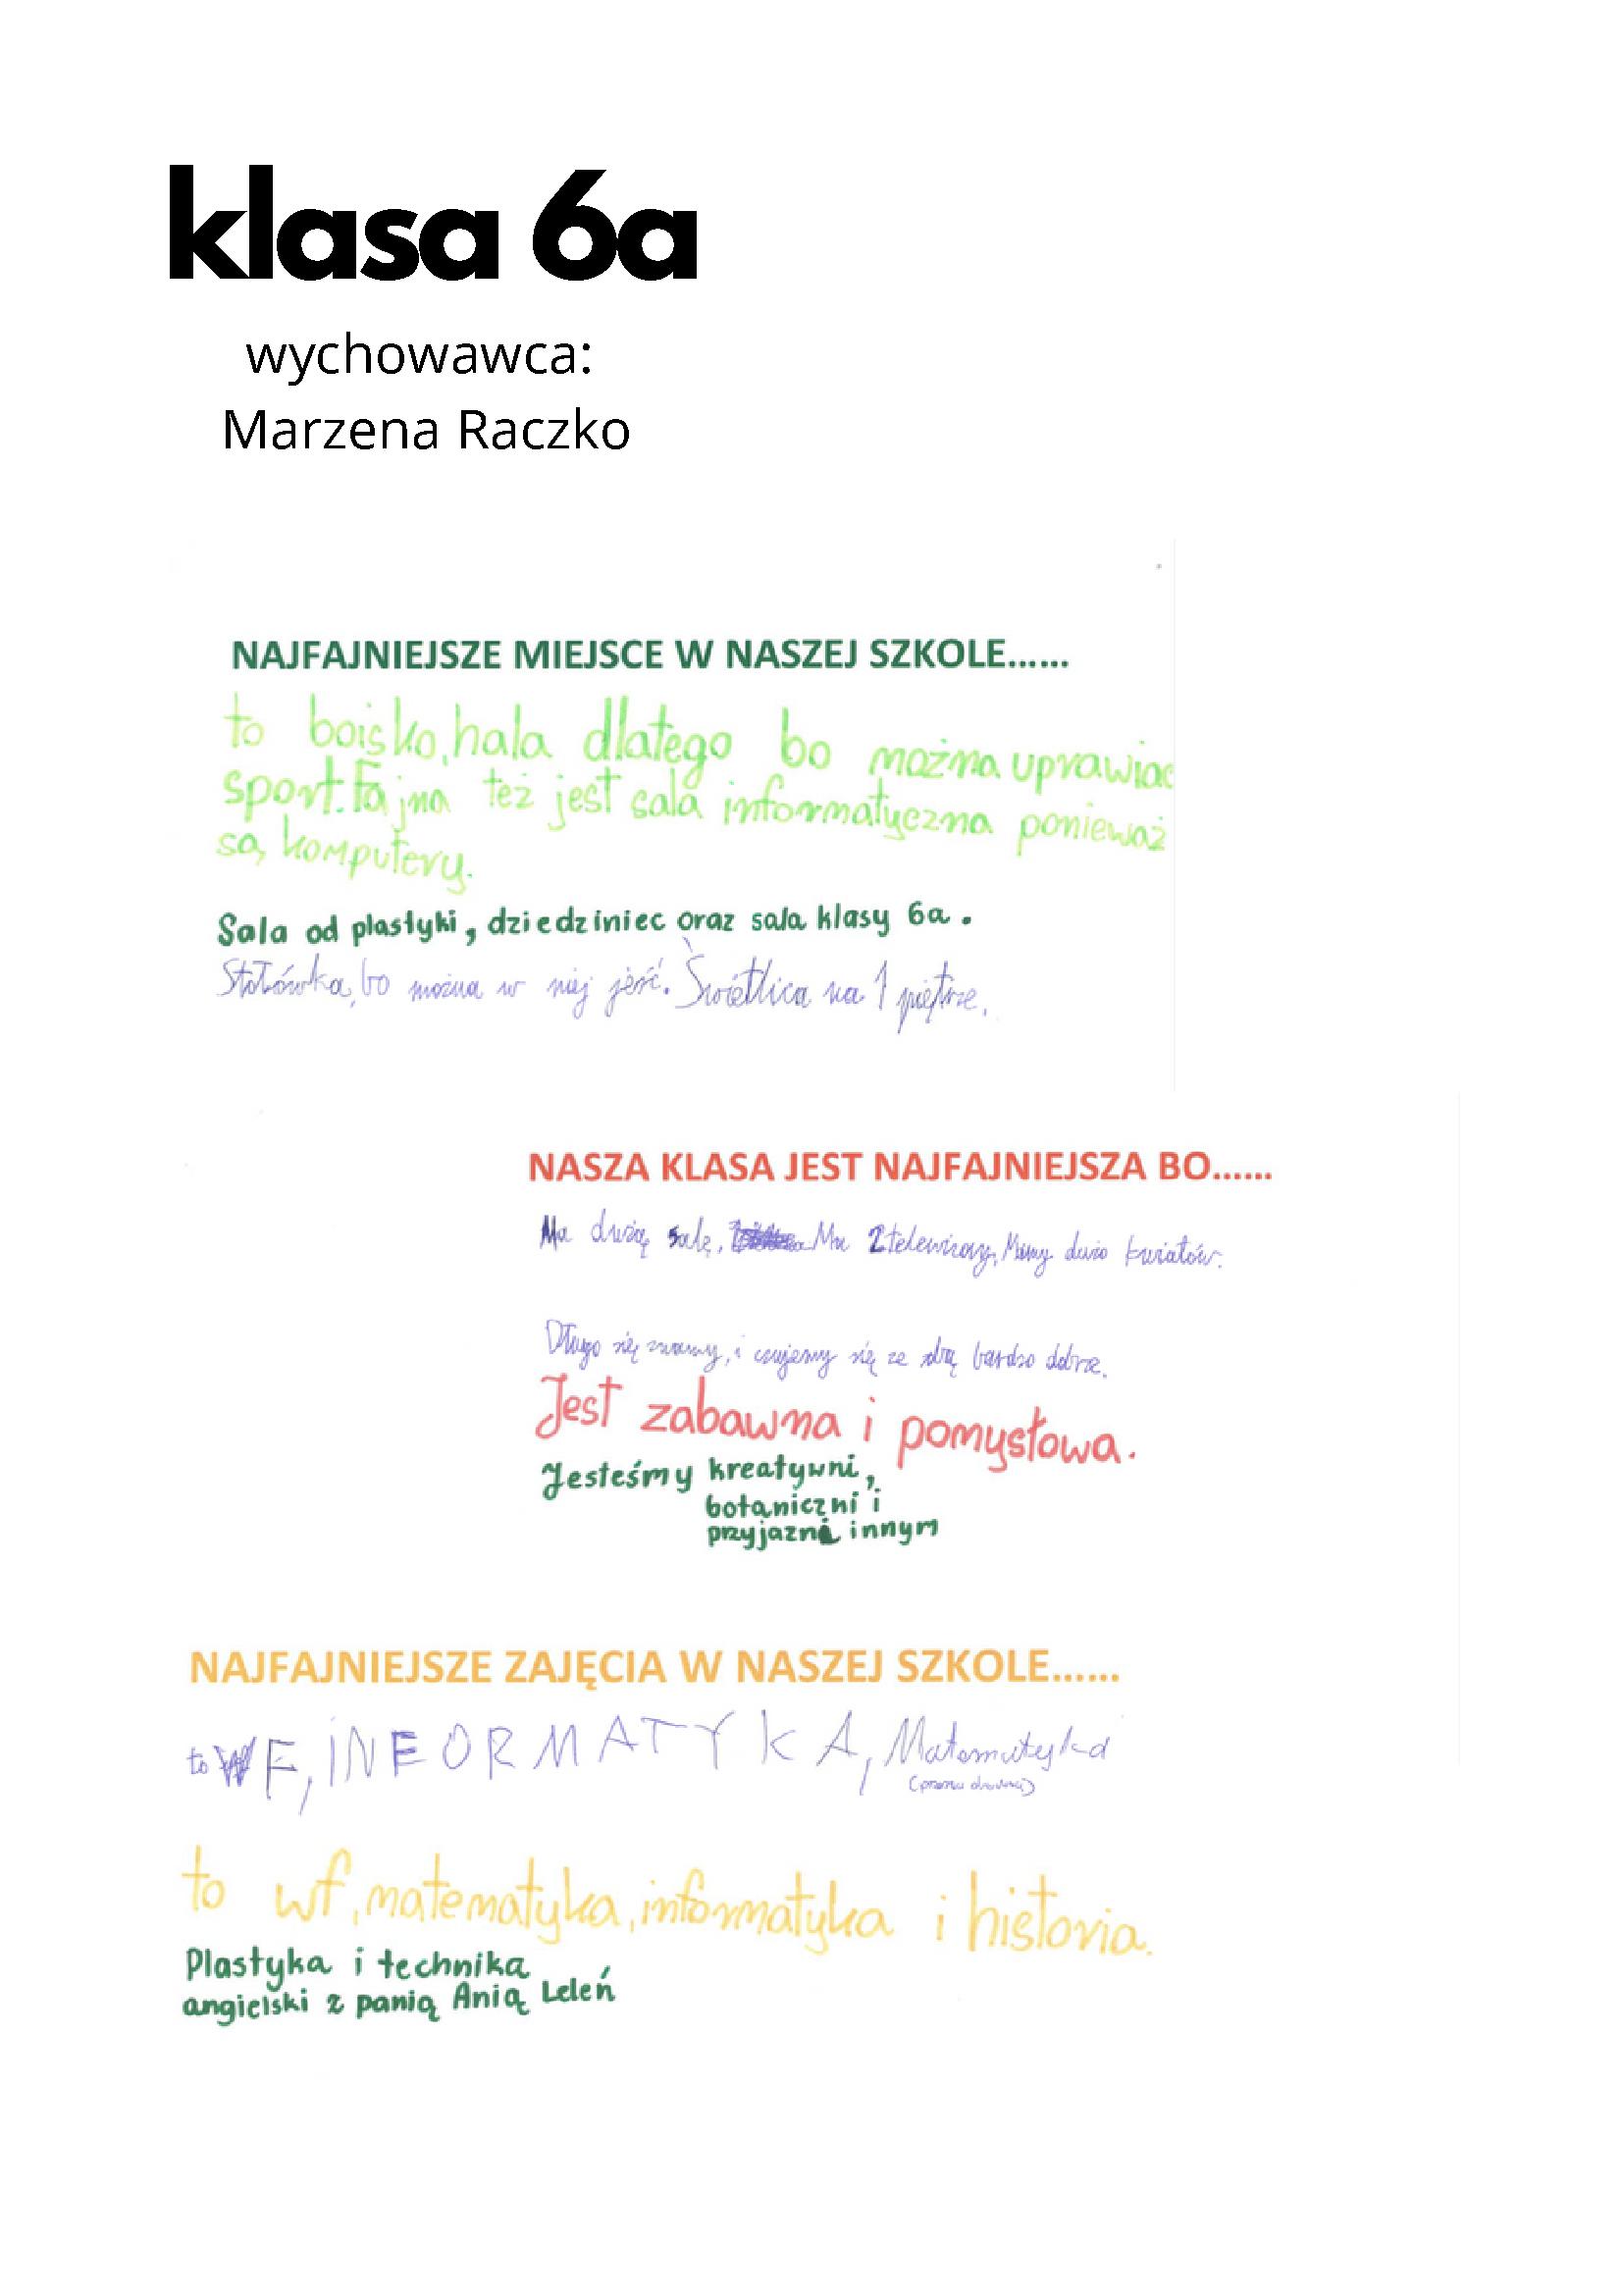 klasa 6a
wychowawca:
Marzena Raczko
NAJFAJNIEJSZE MIEJSCE W NASZEJ SZKOLE......
to boisko, hala dlatego bo można uprawiac
sport. Fajna też jest sala informatyczna ponieważ
są komputery.
Sala od plastyki, dziedziniec oraz sala klasy 6a.
Stołówka, bo można w niej jeść. Świetlica na 1 piętrze.
NASZA KLASA JEST NAJFAJNIEJSZA BO......
Ma dużą salę, Ma 2 telewizory, Mamy dużo kwiatów.
Długo się znamy, i czujemy się ze sobą bardzo dobrze.
Jest zabawna i pomysłowa.
Jesteśmy kreatywni,
botaniczni i
przyjaźni innym
NAJFAJNIEJSZE ZAJĘCIA W NASZEJ SZKOLE......
to WF, INFORMATYKA, Matematyka
to wf, matematyka, informatyka i historia.
Plastyka i technika
angielski z panią Anią Leleń